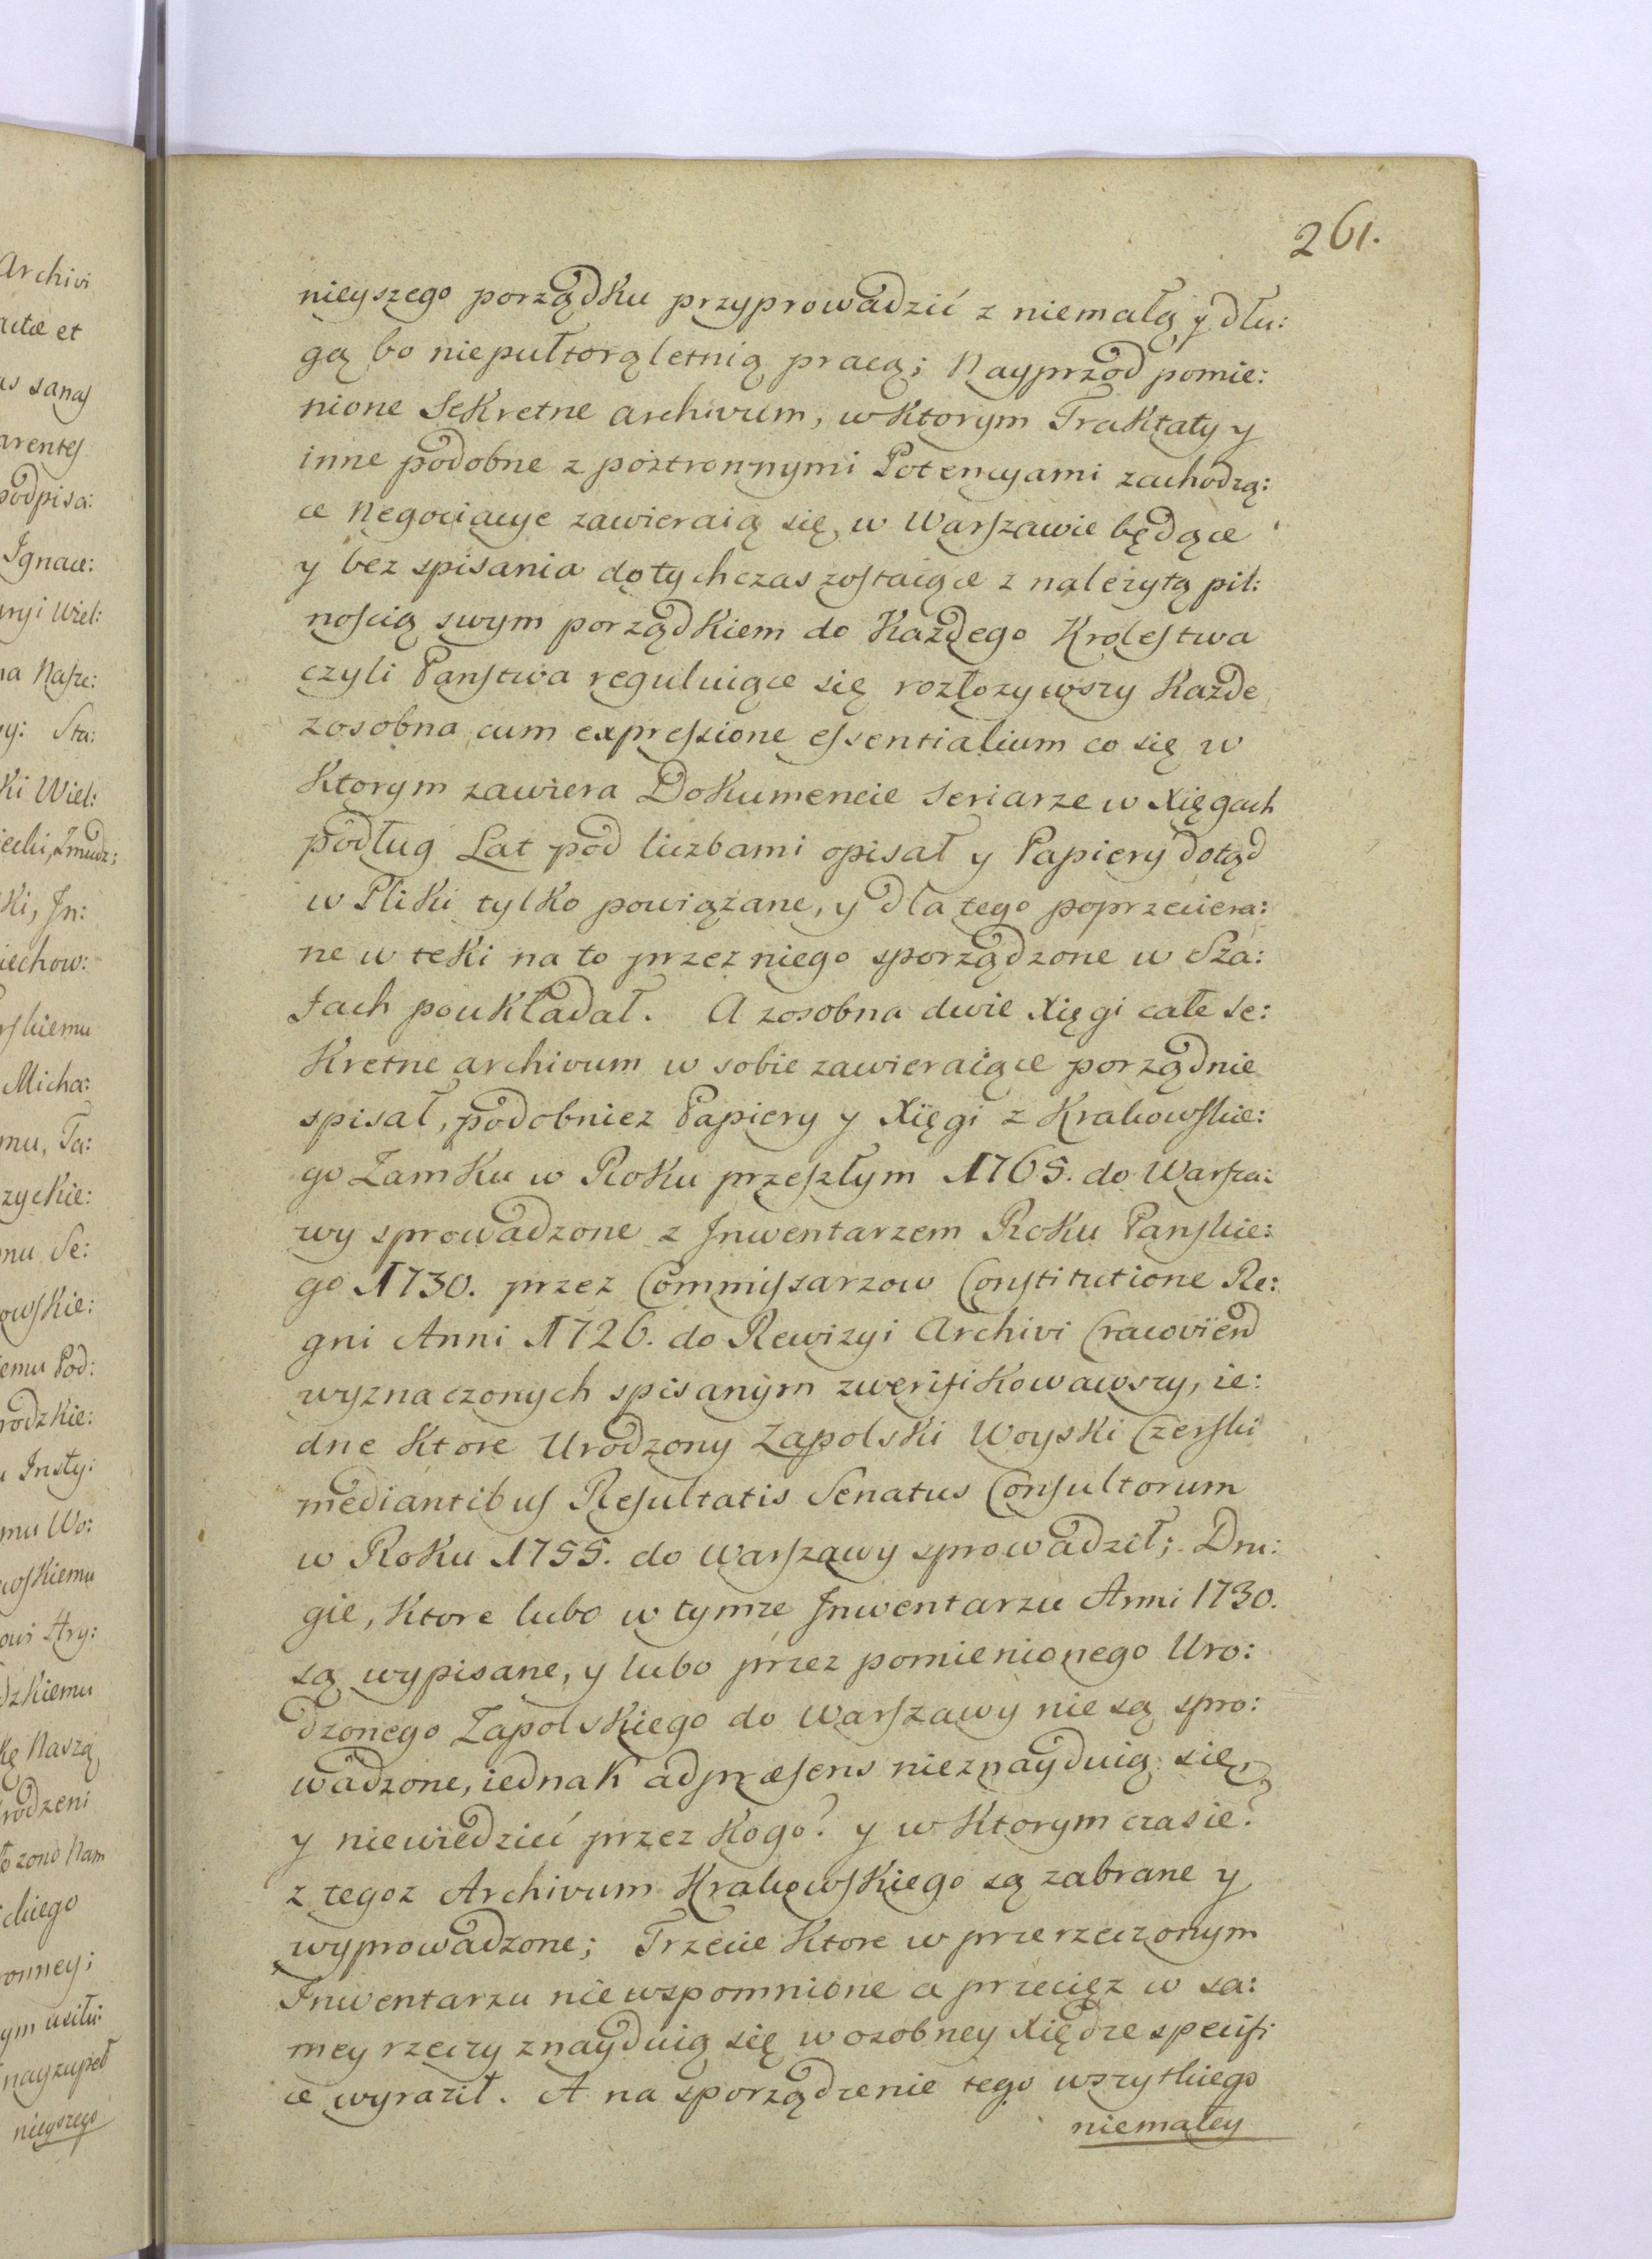 261.
nieyszego porządku przyprowadzić z niemałą y dłu:
gą bo niepułtorąletnią pracą; Nayprzod pomie:
nione Sekretne archivum, w ktorym Traktaty y
inne podobne z postronnymi Potencyami zachodzą:
ce Negociacye zawieraią się, w Warszawie będące
y bez spisania dotychczas zostaiące z należytą pil:
nością swym porządkiem do Każdego Krolestwa
czyli Panstwa reguluiące się rozłozywszy Każde
zosobna cum expressione essentialium co się w
Ktorym zawiera Dokumencie Seriarze w Xięgach
podług Lat pod liczbami opisał y Papiery dotąd
w Pliki tylko powiązane, y dla tego poprzeciera:
ne w teki na to przez niego sporządzone w Sza:
fach poukładał. A zosobna dwie Xięgi całe Se:
Kretne archivum w sobie zawieraiące porządnie
spisał, podobniez Papiery y Xięgi z Krakowskie:
go Zamku w Roku przeszłym 1765. do Warsza:
wy sprowadzone z Inwentarzem Roku Panskie:
go 1730. przez Commissarzow Constitutione Re:
gni Anni 1726. do Rewizyi Archivi Cracovien
wyznaczonych spisanym zwerifikowawszy, ie:
dne Ktore Urodzony Zapolski Woyski Czerski
mediantibus Resultatis Senatus Consultorum
w Roku 1755. do Warszawy sprowadził; Dru:
gie, Ktore lubo w tymze Inwentarzu Anni 1730.
są wypisane, y lubo przez pomienionego Uro:
dzonego Zapolskiego do Warszawy nie są spro:
wadzone, iednak adpræsens nieznayduią się,
y niewiedzieć przez Kogo? y w Ktorym czasie?
z tegoz Archivum Krakowskiego są zabrane y
wyprowadzone; Trzecie Ktore w przerzeczonym
Inwentarzu niewspomnione a przecięz w sa:
mey rzeczy znayduią się w osobney Xiędze specifi
ce wyraził. A na sporządzenie tego wszytkiego
niemałey